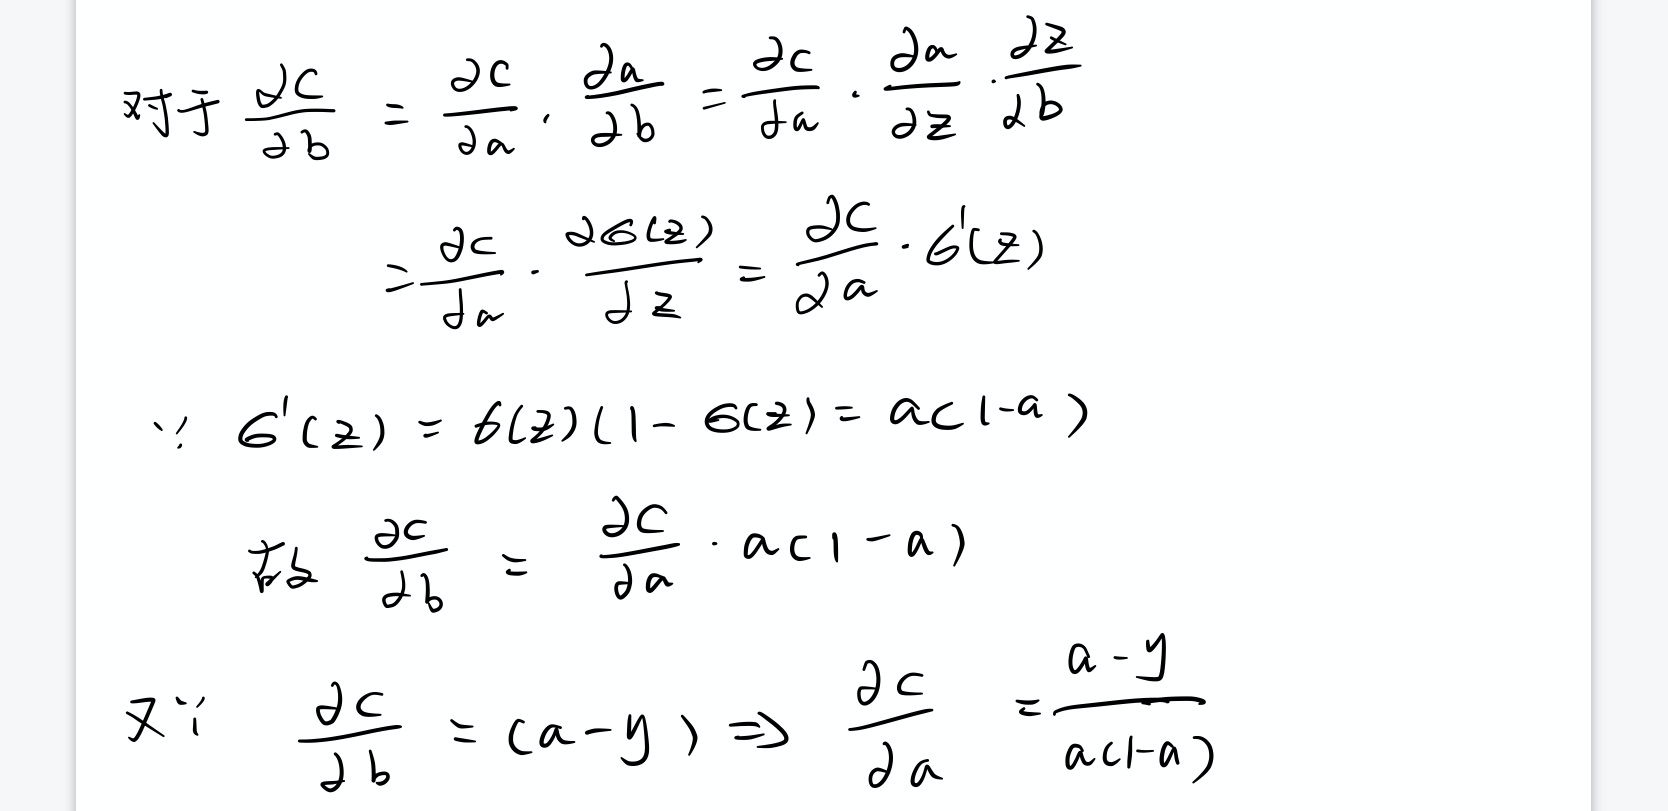 对于 ∂C/∂b = ∂C/∂a · ∂a/∂b = ∂C/∂a · ∂a/∂z · ∂z/∂b
= ∂C/∂a · ∂σ(z)/∂z = ∂C/∂a · σ'(z)
∵ σ'(z) = σ(z)(1-σ(z) = a(1-a)
故 ∂C/∂b = ∂C/∂a · a(1-a)
又∵ ∂C/∂b = (a-y) ⇒ ∂C/∂a = a-y/a(1-a)